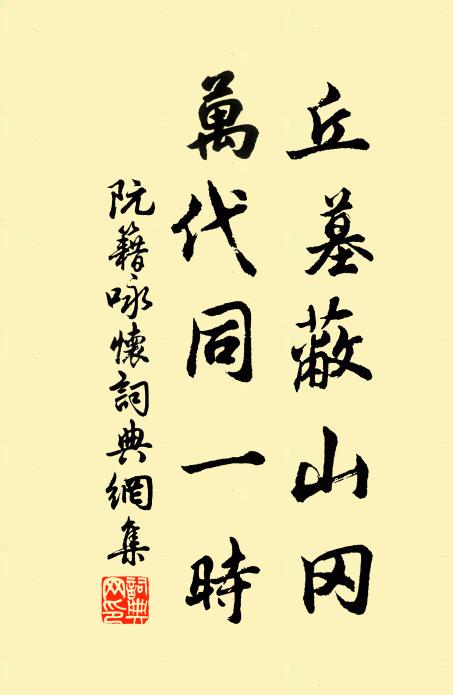 丘墓蔽山冈
萬代同一時
阮籍咏懷詞典網集
詞典網印